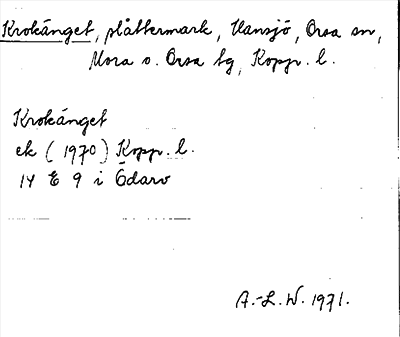 Krokänget, slåttermark, Hansjö, Orsa sn,
Mora o. Orsa tg, Kopp. l.
Krokänget
ek (1970) Kopp. l.
14 E 9 i Ödarv
A.-L. W. 1971.